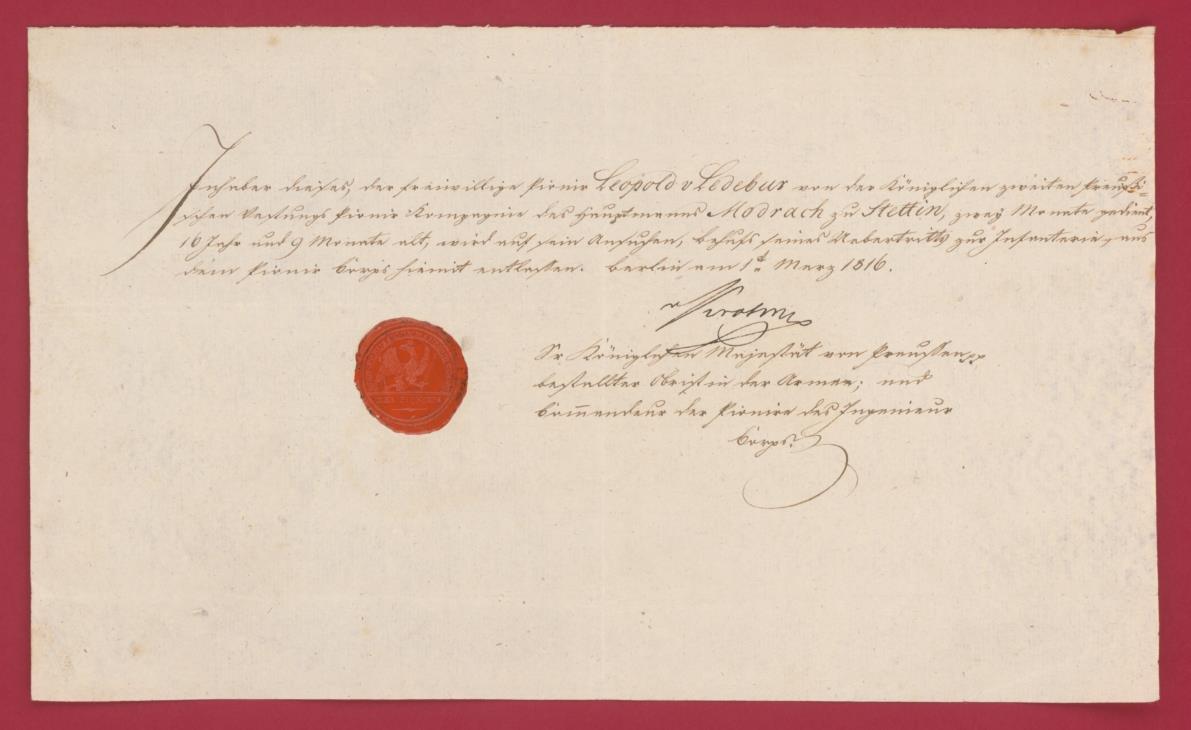 Inhaber dieses, der freiwillige Pionir Leopold v Ledebur von der Königlichen zweiten Preußi-
schen Vestungs Pionir Kompagnie des Hauptmanns Modrach zu Stettin, zwey Monate gedient,
16 Jahr und 9 Monate alt, wird auf sein Ansuchen, behufs seines Uebertritts zur Infanterie, aus
dem Pionir Corps hiemit entlassen. Berlin am 1t Merz 1816.
Sr Königlichen Majestät von Preussen pp
bestallter Obrist in der Armee; und
Com̅andeur der Pionire des Ingenieur
Corps.